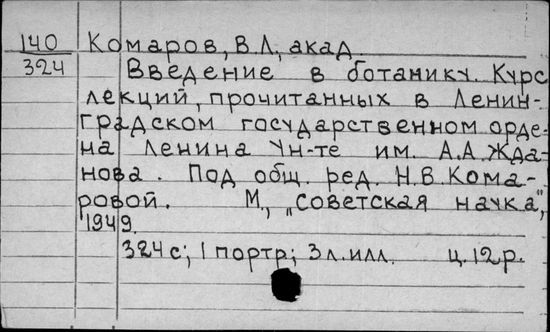 140 Комаров, В.Л., акад.
324 Введение в ботанику. Курс
лекций, прочитанных в Ленин-
градском государственном орде-
на Ленина Ун-те им. А.А. Жда-
нова. Под общ. ред. Н.В. Кома-
ровой. М., "Советская наука",
1949.
324 с; 1 портр; 3 л. илл. ц. 12 р.